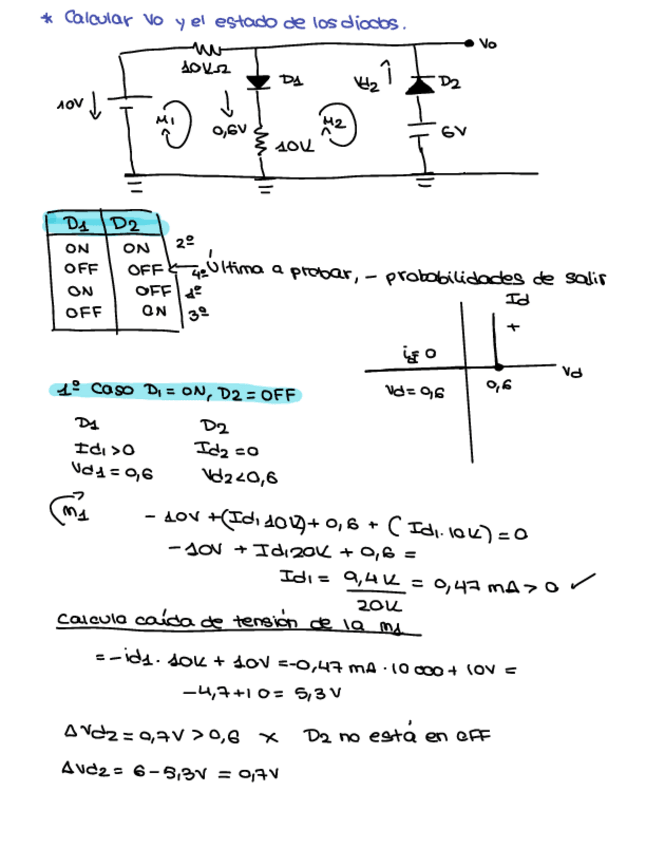 * Calcular Vo y el estado de los diodos.
Vo
10KΩ
D1
Vd2
D2
10V
M1
0,6V
M2
6V
10K
D1 D2
ON ON 2º
OFF OFF 4º Última a probar, - probabilidades de salir
ON OFF 1º
OFF ON 3º
Id
+
if 0
Vd
Vd=0,6
0,6
1º Caso D1 = ON, D2 = OFF
D1 D2
Id1>0 Id2=0
Vd1=0,6 Vd2<0,6
m1 -10V+(Id1 10K)+0,6+(Id1.10K)=0
-10V + Id1 20K + 0,6 =
Id1 = 9,4K / 20K = 0,47 mA > 0 ✓
Calculo caída de tensión de la m1
=-id1. 10K + 10V =-0,47 mA · 10 000 + 10V =
-4,7+10 = 5,3V
ΔVd2=0,7V > 0,6 x D2 no está en OFF
ΔVd2= 6-5,3V = 0,7V